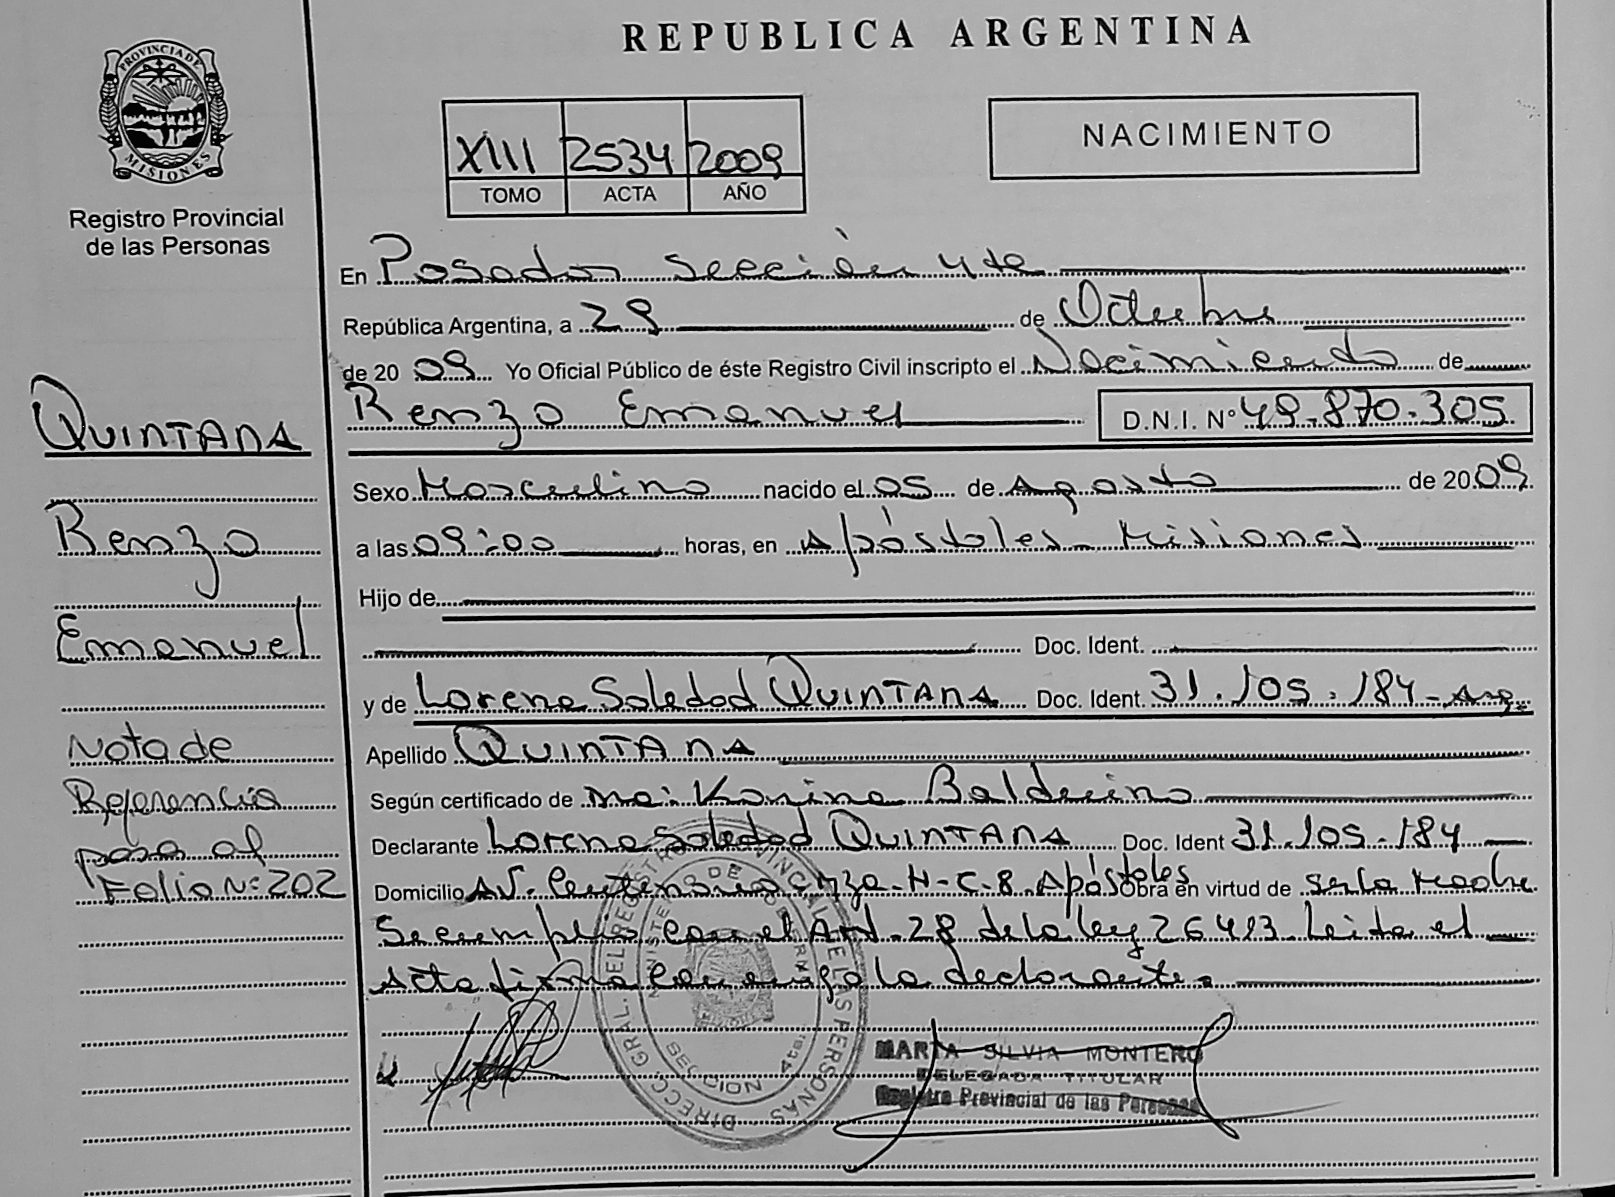 REPUBLICA ARGENTINA
PROVINCIA DE
MISIONES
Registro Provincial
de las Personas
XIII 2534 2009
TOMO ACTA AÑO
NACIMIENTO
En Posadas Sección 4ta
República Argentina, a 29 de Octubre
de 2009 Yo Oficial Público de éste Registro Civil inscripto el Nacimiento de
Renzo Emanuel D.N.I. Nº 49.870.305
Sexo Masculino nacido el 05 de Agosto de 2009
a las 09:00 horas, en Apóstoles Misiones
Hijo de
Doc. Ident.
y de Lorena Soledad QUINTANA Doc. Ident. 31.105.184 - Arg.
Apellido QUINTANA
Según certificado de Karina Balduino
Declarante Lorena Soledad QUINTANA Doc. Ident 31.105.184
Domicilio AV. Centenario Mza-H-C-8 Apóstoles Obra en virtud de ser la Madre
Se cumplió con el Art. 28 de la ley 26413 Leida el
Acta firma conmigo la declarante.
QUINTANA
Renzo
Emanuel
Nota de
Referencia
pasa al
Folio Nº 202
DIRECC. GRAL. DEL REGISTRO PROVINCIAL DE LAS PERSONAS
MINISTERIO DE
SECCION 4ta.
MARTA SILVIA MONTERO
DELEGADA TITULAR
Registro Provincial de las Personas